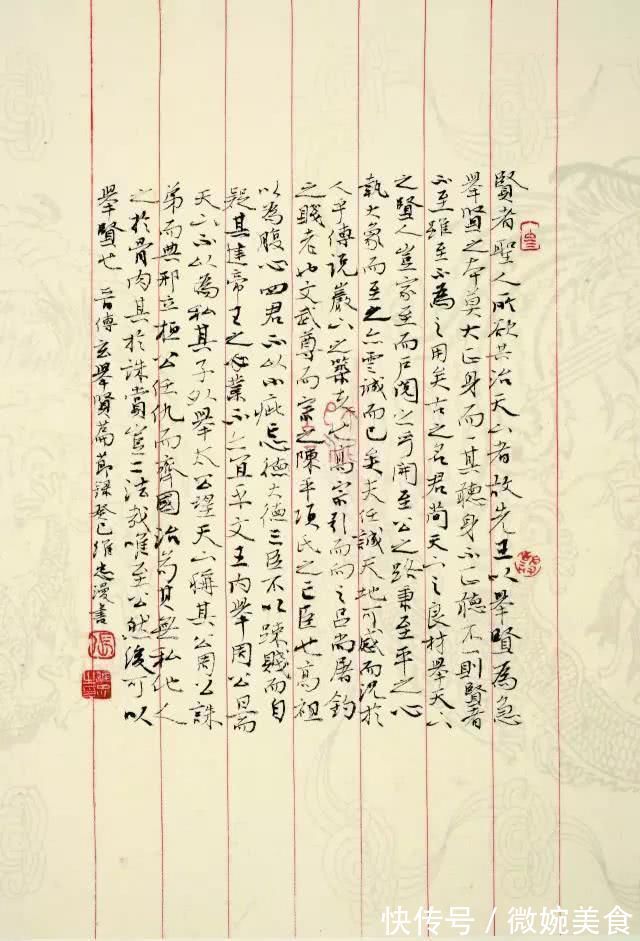 賢者聖人所欲共治天下者故先王以舉賢為急
舉賢之本莫大正身而一其聽身不正聽不一則賢者
不至雖至不為之用矣古之名君簡天下之良材舉天下
之賢人豈家至而戶閱之乎開至公之路秉至平之心
執大象而至之亦雲誠而已矣夫任誠天地可感而況於
人乎傅說巖下之築夫也高宗引而相之呂尚屠釣
之賤老也文武尊而宗之陳平項氏之亡臣也高祖
以為腹心四君不以小疵忘德大德三臣不以疎賤而自
疑其建帝王之業不亦宜乎文王內舉周公旦而
天下不以為私其子外舉太公望天下稱其公周公誅
弟而典刑立桓公任仇而齊國治苟其無私他人
之於骨肉其於誅賞豈二法哉唯至公然後可以
舉賢也 晉傅玄舉賢篇節錄癸巳維忠漫書
張
快传号/微婉美食